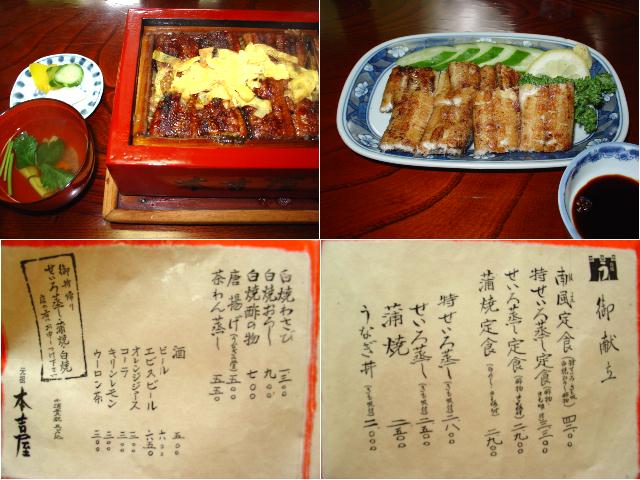 御献立
南風定食 四二〇〇
特せいろ蒸し定食 三三〇〇
せいろ蒸し定食 二九〇〇
蒲焼定食 二九〇〇
特せいろ蒸し(きも吸付) 二八〇〇
せいろ蒸し(きも吸付) 二五〇〇
蒲焼(きも吸付) 二五〇〇
うなぎ丼(きも吸付) 二〇〇〇
白焼わさび 一三〇〇
白焼おろし 九〇〇
白焼酢の物 七〇〇
唐揚げ 一五〇〇
茶わん蒸し 五五〇
酒 五〇〇
ビール
エビスビール 六五〇
オレンジジュース 三〇〇
コーラ 三〇〇
キリンレモン 三〇〇
ウーロン茶 三〇〇
御持帰り
せいろ蒸し・蒲焼・白焼
元祖 本吉屋